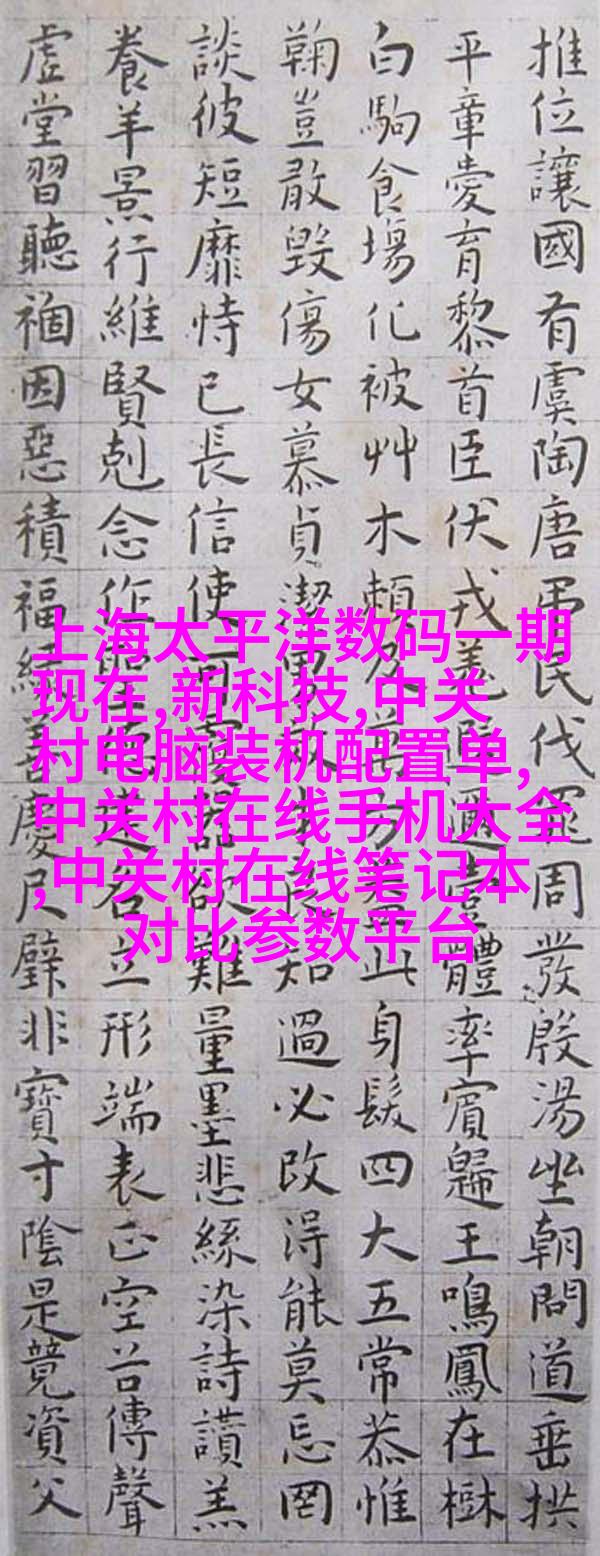 推位讓國有虞陶唐弔民伐罪周發殷湯坐朝問道垂拱
平章愛育黎首臣伏戎羌遐邇壹體率賓歸王鳴鳳在樹
白駒食場化被艸木賴及萬方蓋此身髮四大五常恭惟
鞠豈敢毀傷女慕貞潔男效才良知過必改得能莫忘罔
談彼短靡恃己長信使可覆器欲難量墨悲絲染詩讚羔
養羊景行維賢剋念作聖德建名立形端表正空谷傳聲
虛堂習聽禍因惡積福緣善慶尺璧非寶寸陰是競資父
上海太平洋数码一期
现在,新科技,中关
村电脑装机配置单,
中关村在线手机大全
,中关村在线笔记本
对比参数平台